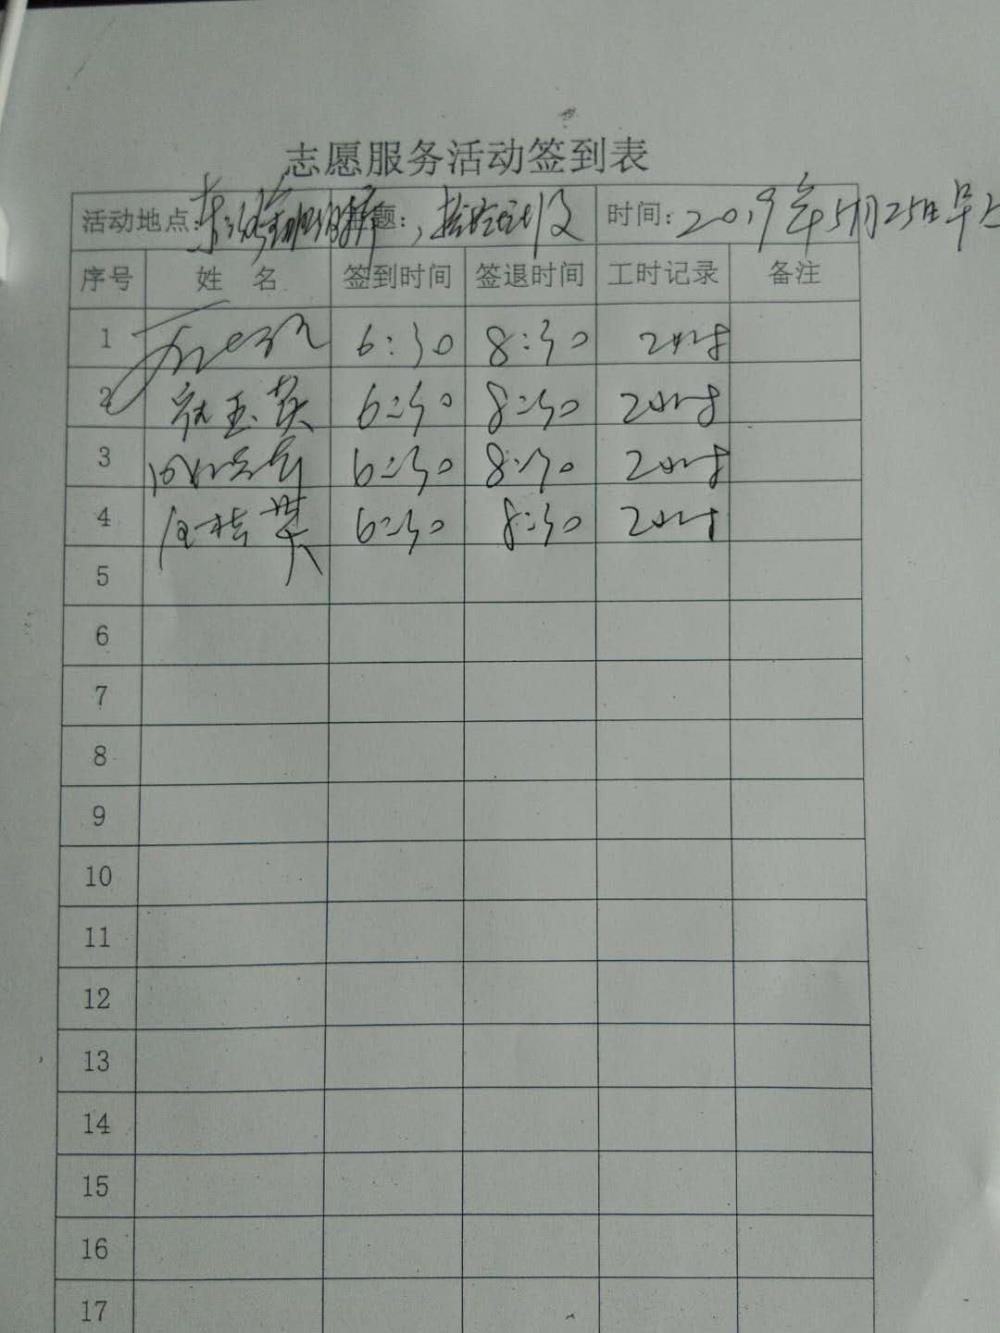 志愿服务活动签到表
活动地点: 题: 时间: 2019年5月25日早上
序号 姓 名 签到时间 签退时间 工时记录 备注
1 6:30 8:30 2小时
2 玉英 6:30 8:30 2小时
3 6:30 8:30 2小时
4 桂英 6:30 8:30 2小时
5
6
7
8
9
10
11
12
13
14
15
16
17